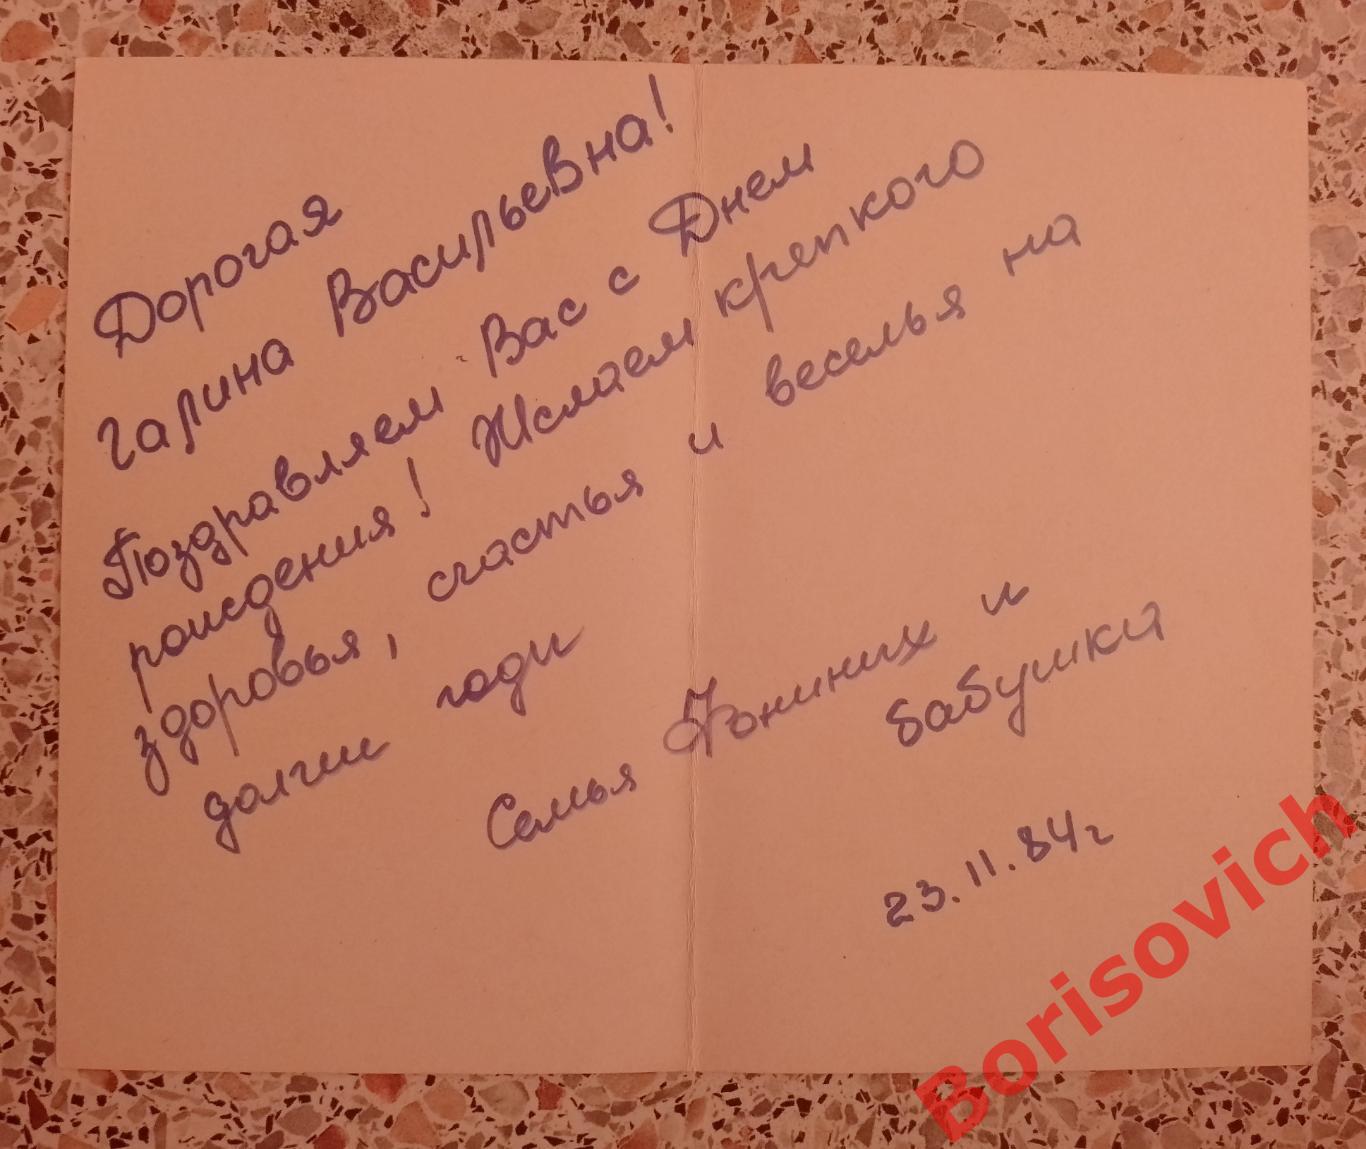 Дорогая
Галина Васильевна!
Поздравляем Вас с Днем
рождения! Желаем крепкого
здоровья, счастья и веселья на
долгие годы
Семья и
бабушка
23.11.84г
Borisovich